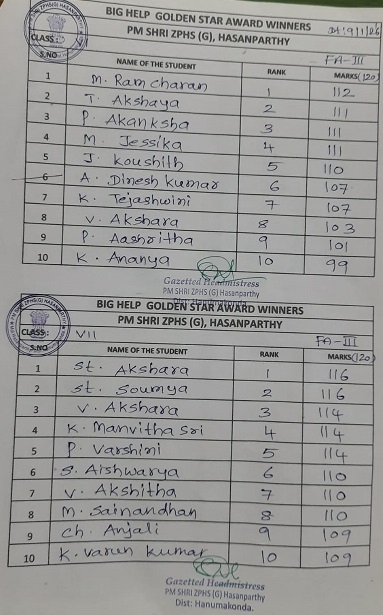 BIG HELP GOLDEN STAR AWARD WINNERS
Dt:9/1/26
PM SHRI ZPHS (G), HASANPARTHY
CLASS:
FA-III
S.NO NAME OF THE STUDENT RANK MARKS(120)
1 M. Ram charan 1 112
2 T. Akshaya 2 111
3 P. Akanksha 3 111
4 M. Jessika 4 111
5 J. koushith 5 110
6 A. Dinesh kumar 6 107
7 K. Tejashwini 7 107
8 V. Akshara 8 103
9 P. Aashritha 9 101
10 K. Ananya 10 99
Gazetted Headmistress
PM SHRI ZPHS (G) Hasanparthy
BIG HELP GOLDEN STAR AWARD WINNERS
PM SHRI ZPHS (G), HASANPARTHY
CLASS: VII FA-III
S.NO NAME OF THE STUDENT RANK MARKS(120)
1 St. Akshara 1 116
2 St. Soumya 2 116
3 V. Akshara 3 114
4 K. Manvitha Sri 4 114
5 P. Varshini 5 114
6 S. Aishwarya 6 110
7 V. Akshitha 7 110
8 M. Sainandhan 8 110
9 Ch. Anjali 9 109
10 K. Varun kumar 10 109
Gazetted Headmistress
PM SHRI ZPHS (G) Hasanparthy
Dist: Hanumakonda.